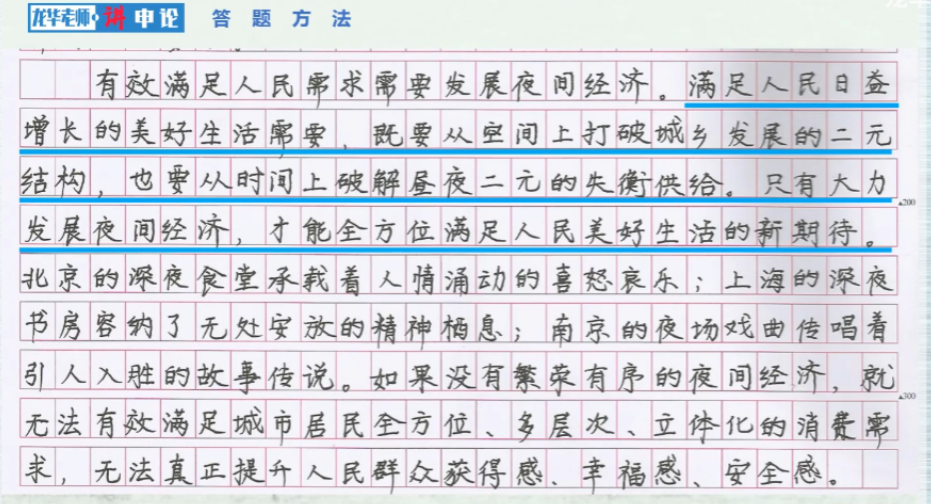 龙华老师·讲申论 答题方法
有效满足人民需求需要发展夜间经济。满足人民日益
增长的美好生活需要，既要从空间上打破城乡发展的二元
结构，也要从时间上破解昼夜二元的失衡供给。只有大力
200
发展夜间经济，才能全方位满足人民美好生活的新期待。
北京的深夜食堂承载着人情涌动的喜怒哀乐；上海的深夜
书房容纳了无处安放的精神栖息；南京的夜场戏曲传唱着
引人入胜的故事传说。如果没有繁荣有序的夜间经济，就
300
无法有效满足城市居民全方位、多层次、立体化的消费需
求，无法真正提升人民群众获得感、幸福感、安全感。